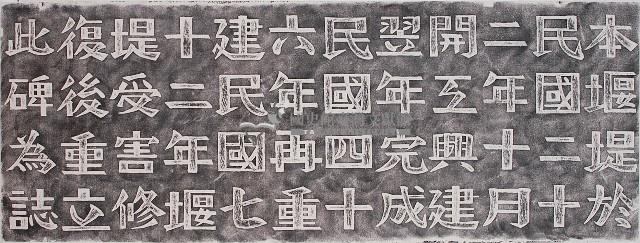 本堰堤於
民國二十
二年十月
開工興建
翌年完成
民國四十
六年再重
建民國七
十二年堰
堤受害修
復後重立
此碑為誌